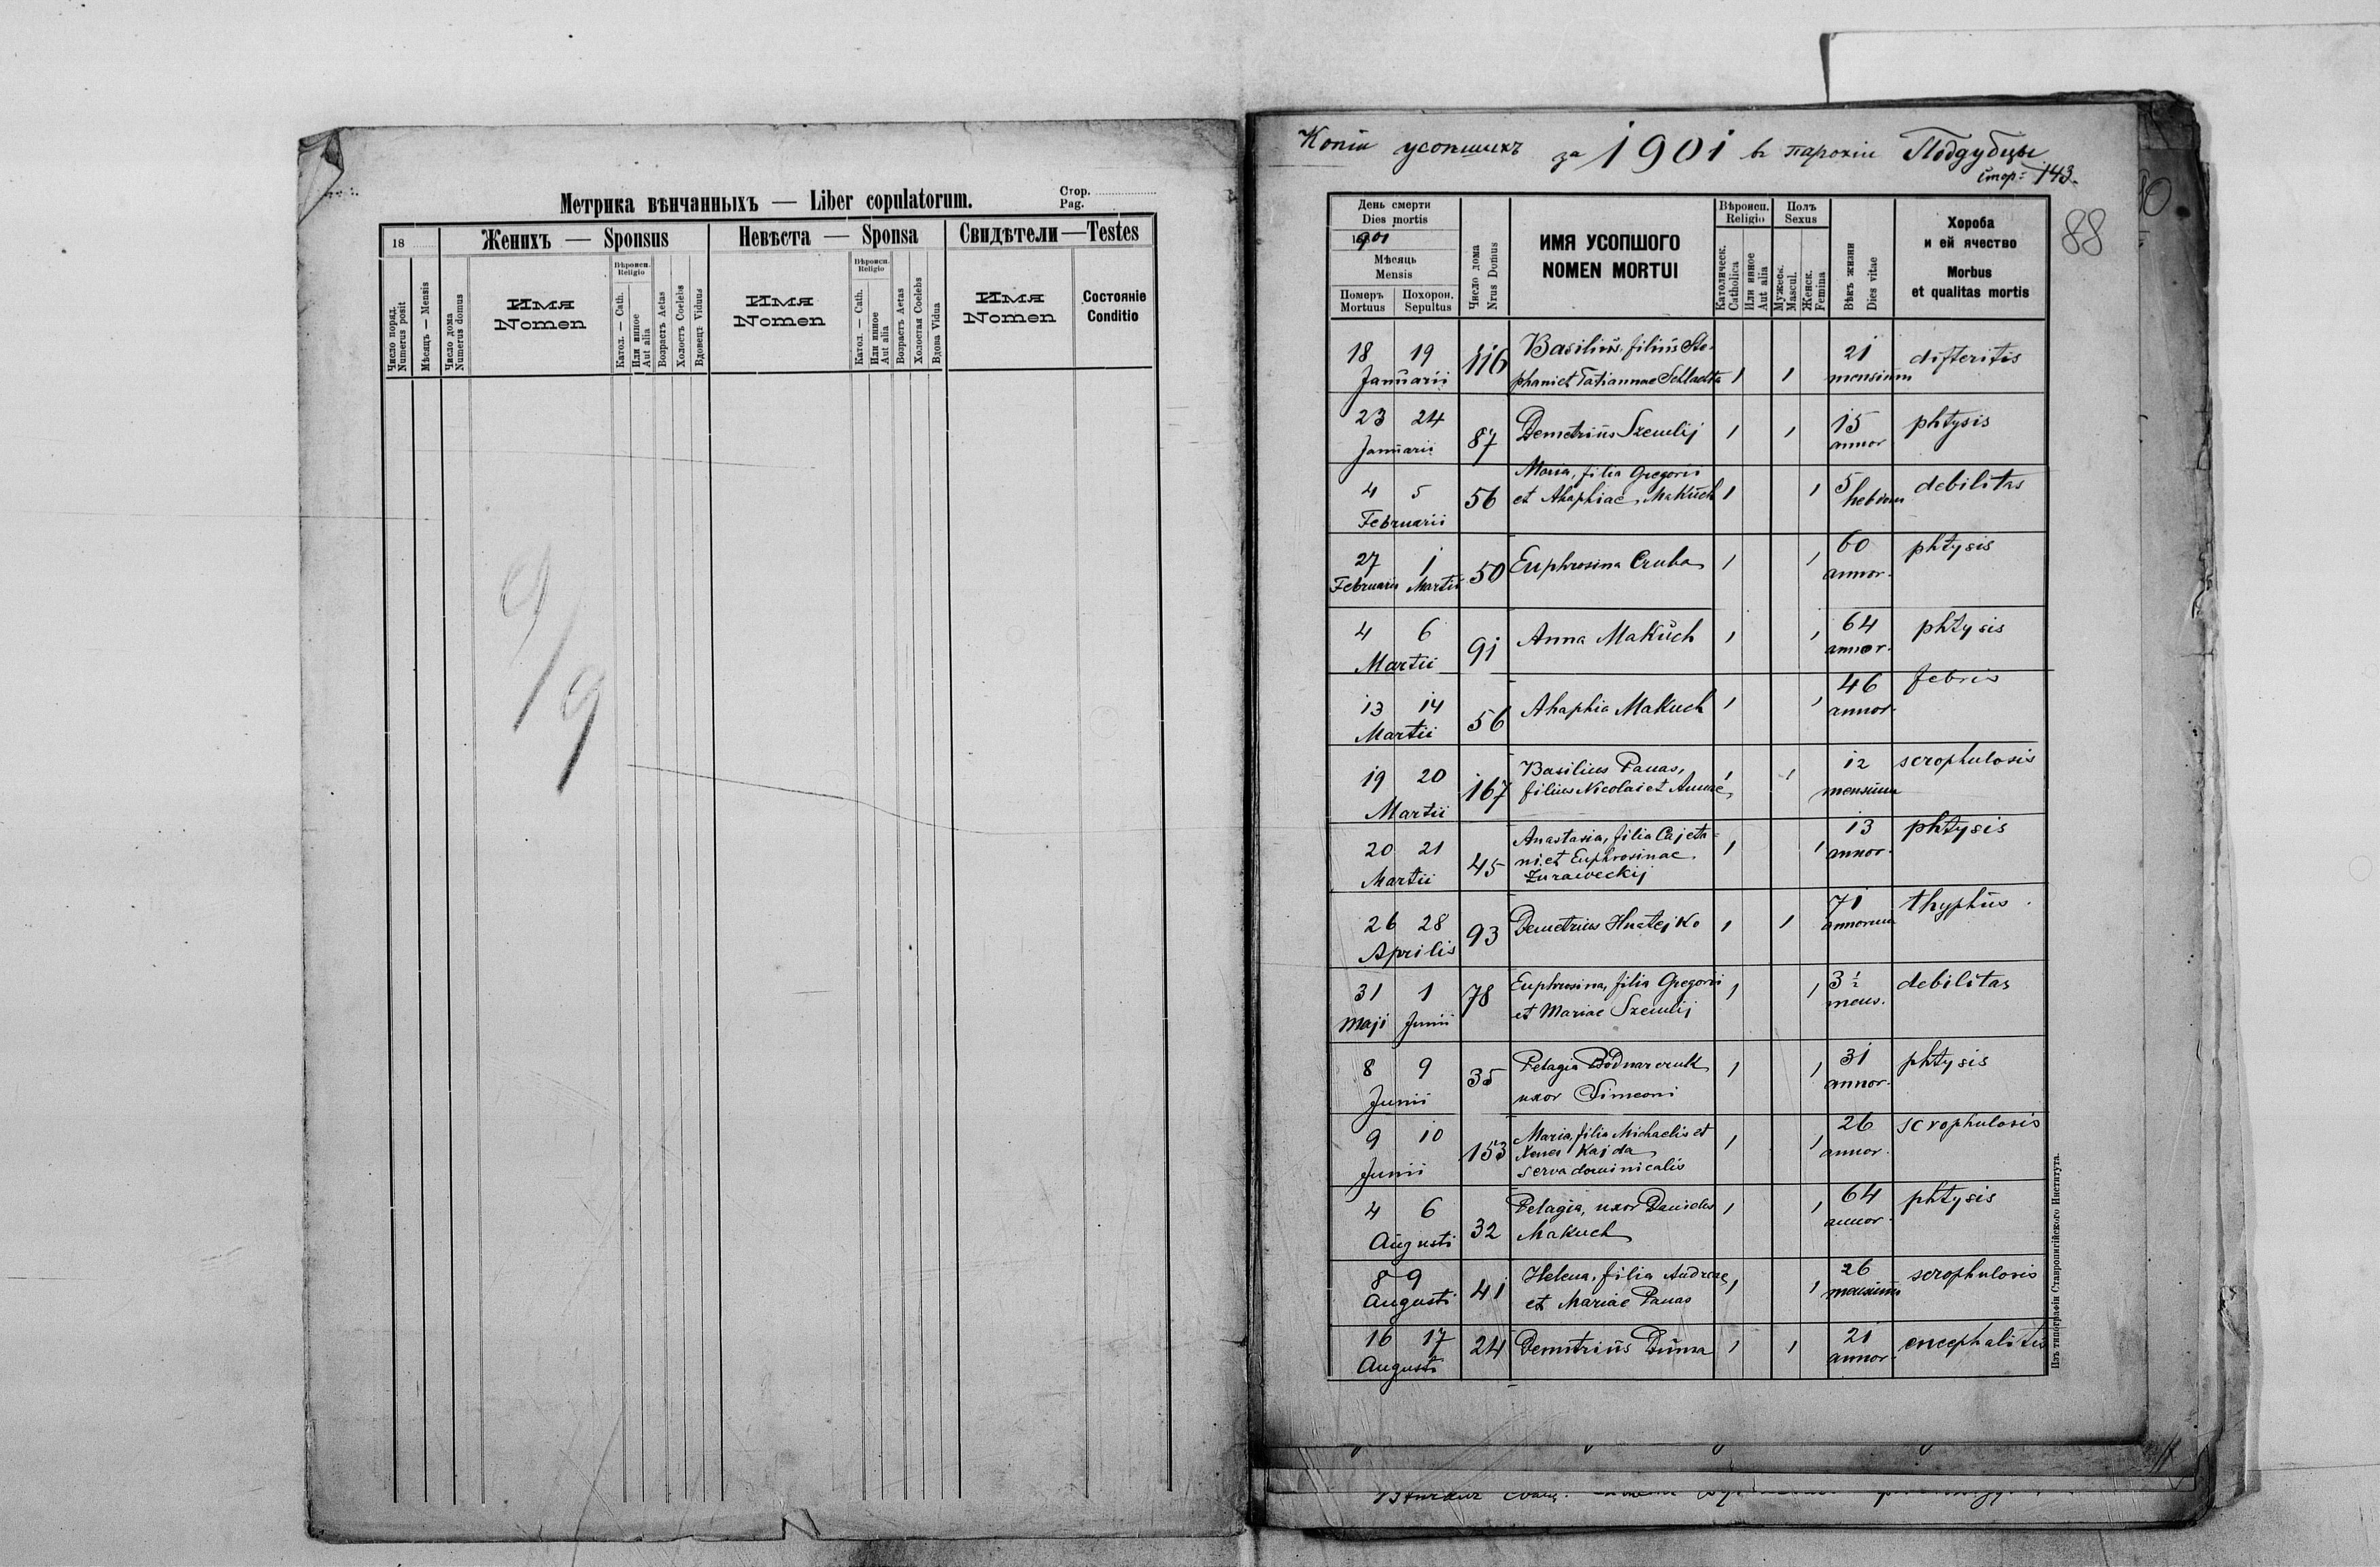 Метрика вѣнчанныхъ — Liber copulatorum.
Стор.
Pag.
18
Женихъ — Sponsus
Невѣста — Sponsa
Свидѣтели — Testes
Число поряд.
Numerus posit
Мѣсяцъ — Mensis
Число дома
Numerus domus
Имя
Nomen
Вѣроисп.
Religio
Катол. — Cath.
Или инное
Aut alia
Возрастъ Aetas
Холостъ Coelebs
Вдовецъ Viduus
Имя
Nomen
Вѣроисп.
Religio
Катол. — Cath.
Или инное
Aut alia
Возрастъ Aetas
Холостая Coelebs
Вдова Vidua
Имя
Nomen
Состояніе
Conditio
9/9
Копія усопшихъ за 1901 въ парохіи Поддубцы
стор: 143.
88
День смерти
Dies mortis
1901
Мѣсяць
Mensis
Померъ
Mortuus
Похорон.
Sepultus
Число дома
Nrus Domus
ИМЯ УСОПШОГО
NOMEN MORTUI
Вѣроисп.
Religio
Католическ.
Catholica
Или инное
Aut alia
Полъ
Sexus
Мужеск.
Mascul.
Женск.
Femina
Вѣкъ жизни
Dies vitae
Хороба
и ей ячество
Morbus
et qualitas mortis
18 19 116 Basilius, filius Ste-
Januarii phani et Tatiannae Schlachta 1 1 21 mensium difteritis
23 24 87 Demetrius Szemlij 1 1 15 phtysis
Januarii annor
4 5 56 Maria, filia Gregorii
Februarii et Ahaphiae Makuch 1 1 5 hebdom debilitas
27 1 50 Euphrosina Czuba 1 1 60 phtysis
Februarii Martii annor.
4 6 91 Anna Makuch 1 1 64 phtysis
Martii annor.
13 14 56 Ahaphia Makuch 1 1 46 febris
Martii annor.
19 20 167 Basilius Panas, 1 1 12 scrophulosis
Martii filius Nicolai et Annae mensium
20 21 45 Anastasia, filia Cajeta-
Martii ni et Euphrosinae 1 1 13 annor. phtysis
Zuraweckij
26 28 93 Demetrius Hnatejko 1 1 71 thyphus
Aprilis annorum
31 1 78 Euphrosina, filia Gregorii 1 1 3 1/2 debilitas
Maji Junii et Mariae Szemlij mens.
8 9 35 Pelagia Bodnarczuk 1 1 31 phtysis
Junii uxor Simeoni annor.
9 10 153 Maria, filia Michaelis et 1 1 26 scrophulosis
Junii Kajda annor.
serva dominicalis
4 6 32 Pelagia, uxor Danielis 1 1 64 phtysis
Augusti Makuch annor.
8 9 41 Helena, filia Andreae 1 1 26 scrophulosis
Augusti et Mariae Panas mensium
16 17 24 Demitrius Duma 1 1 21 encephalitis
Augusti annor.
Изъ типографіи Ставропигійского Института.